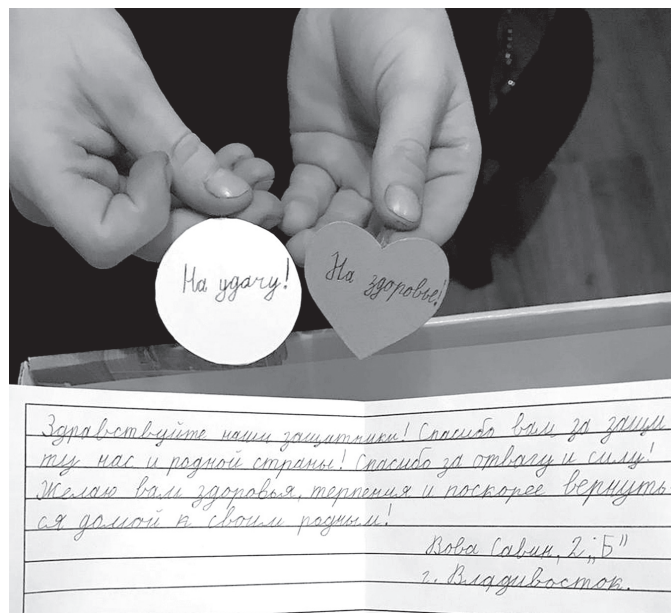 На удачу!
На здоровье!
Здравствуйте наши защитники! Спасибо вам за защи
ту нас и родной страны! Спасибо за отвагу и силу!
Желаю вам здоровья, терпения и поскорее вернуть
ся домой к своим родным!
Вова Савин, 2 „Б"
г. Владивосток.